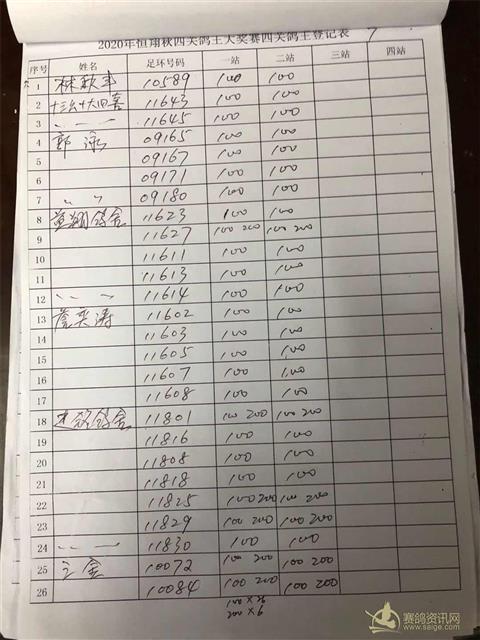 2020年恒翔秋四关鸽王大奖赛四关鸽王登记表 7
序号 姓名 足环号码 一站 二站 三站 四站
1 林秋丰 10589 100 100
2 11643 100 100
3 〃 — 11645 100 100
4 郭 泳 09165 100 100
5 09167 100 100
6 09171 100 100
7 〃 〃 09180 100 100
8 鸽舍 11623 100 100
9 11627 100 200 100 200
10 11611 100 100
11 11613 100 100
12 〃 — 11614 100 100
13 11602 100 100
14 11603 100 100
15 11605 100 100
16 11607 100 100
17 11608 100 100
18 鸽舍 11801 100 200 100 200
19 11816 100 100
20 11808 100 100
21 11818 100 100
22 11825 100 200 100 200
23 11829 100 200 100 200
24 〃 — 11830 100 100
25 10072 100 200 100 200
26 10084 100 200 100 200
100 × 26
200 × 6
赛鸽资讯网
www.saige.com